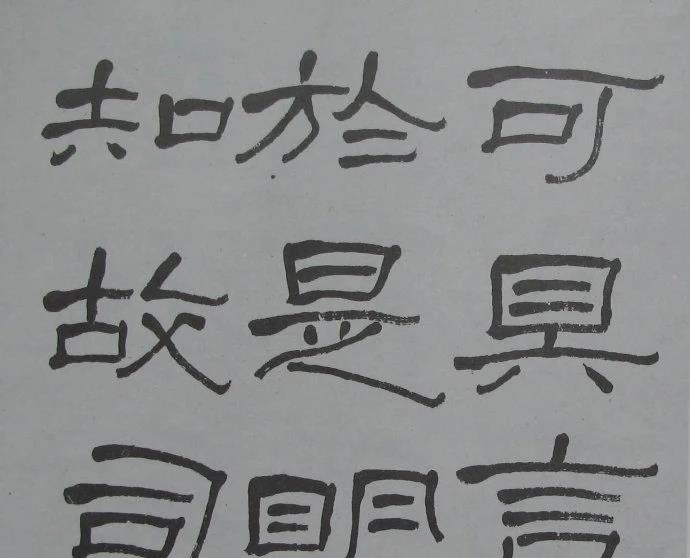 可具言
於是明
知故司